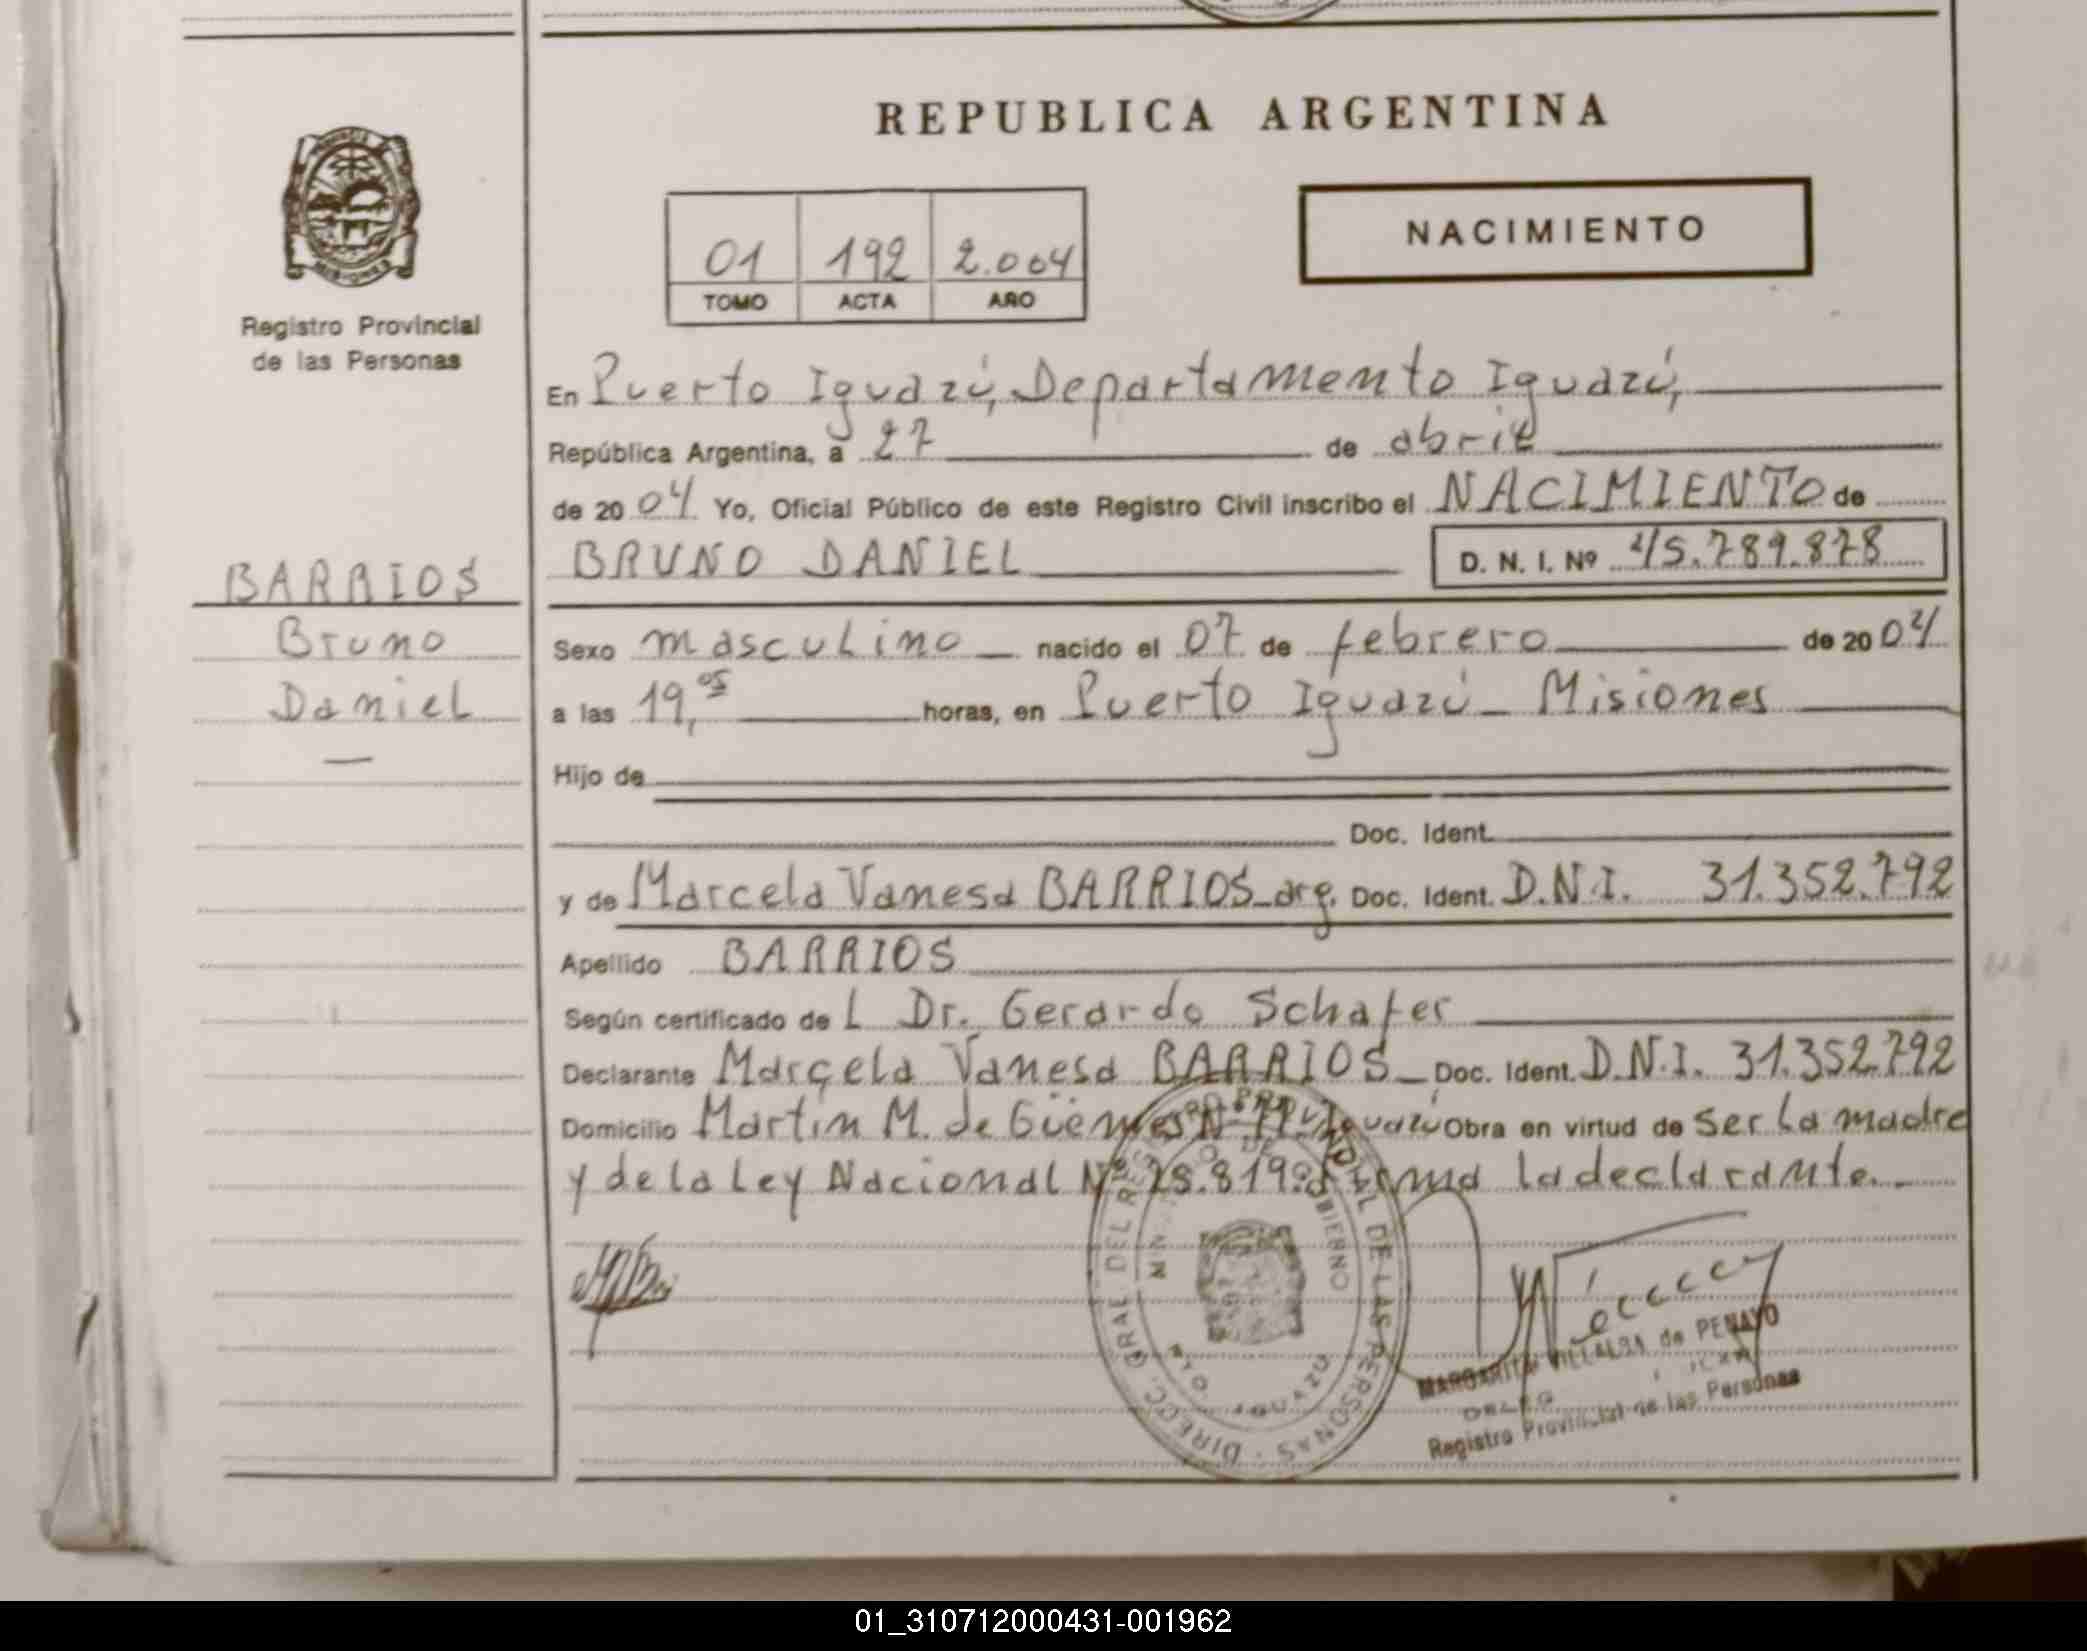 REPUBLICA ARGENTINA
NACIMIENTO
01 192 2.004
TOMO ACTA AÑO
Registro Provincial
de las Personas
En Puerto Iguazú, Departamento Iguazú,
República Argentina, a 27 de abril
de 2004 Yo, Oficial Público de este Registro Civil inscribo el NACIMIENTO de
BRUNO DANIEL D. N. I. Nº 45.789.878
BARRIOS
Bruno
Daniel
Sexo masculino nacido el 07 de febrero de 2004
a las 19,05 horas, en Puerto Iguazú - Misiones
Hijo de
Doc. Ident.
y de Marcela Vanesa BARRIOS - arg. Doc. Ident. D.N.I. 31.352.792
Apellido BARRIOS
Según certificado de L Dr. Gerardo Schafer
Declarante Marcela Vanesa BARRIOS - Doc. Ident. D.N.I. 31.352.792
Domicilio Martín M. de Güemes Iguazú Obra en virtud de ser la madre
y de la Ley Nacional Nº 25.819. firma la declarante.
DIRECC. GRAL DEL REGISTRO PROVINCIAL DE LAS PERSONAS
MINISTERIO DE GOBIERNO
PTO. IGUAZU
MARGARITA VILLALBA de PENAYO
Registro Provincial de las Personas
01_310712000431-001962